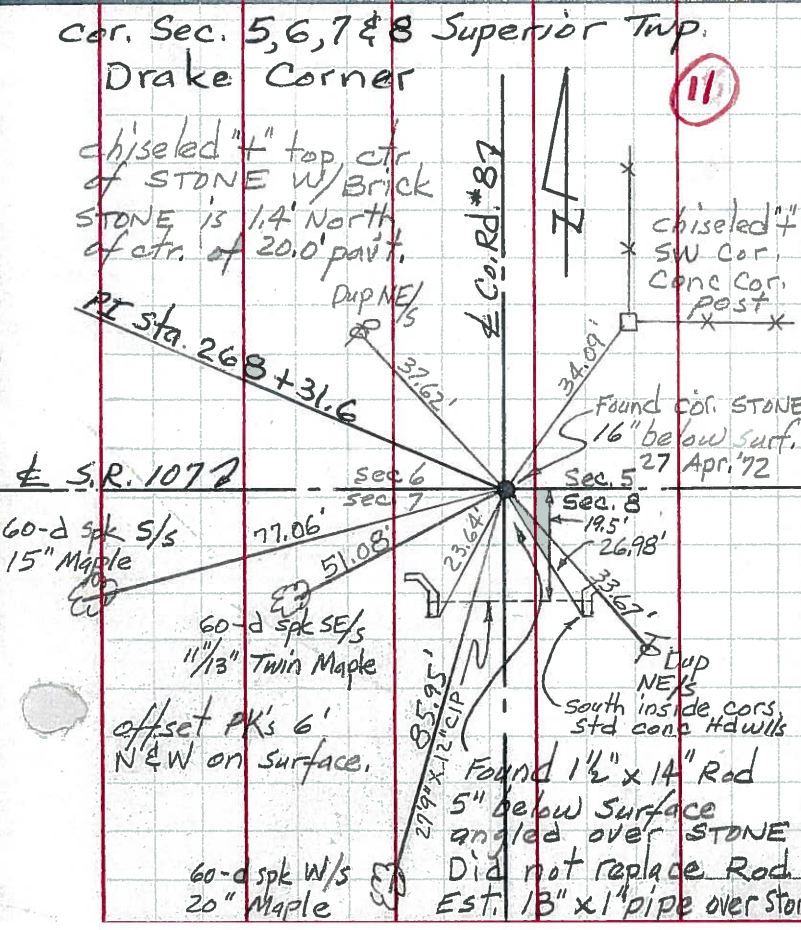 cor. Sec. 5,6,7 & 8 Superior Twp.
Drake Corner
11
chiseled "+" top, ctr
of STONE W/Brick
STONE is 1.4' North
of ctr. of 20.0' pav't.
℄ Co. Rd. #87
Z
chiseled "+"
SW Cor.
Conc Cor.
post
Dup NE/s
PI Sta. 268+31.6
37.62'
34.09'
Found cor. STONE
16" below surf.
27 Apr. '72
℄ S.R. 107
sec. 6
sec. 7
Sec. 5
Sec. 8
19.5'
26.98'
33.67'
60-d spk S/s
15" Maple
77.06'
51.08'
23.64'
60-d spk SE/s
11"/13" Twin Maple
Dup
NE/s
South inside cors.
Std conc Hdwlls
offset PK's 6'
N & W on surface.
85.95'
27'9" x 12" CIP
Found 1½" x 14" Rod
5" below Surface
angled over STONE
Did not replace Rod
Est. 13" x 1" pipe over
60-d spk W/s
20" Maple